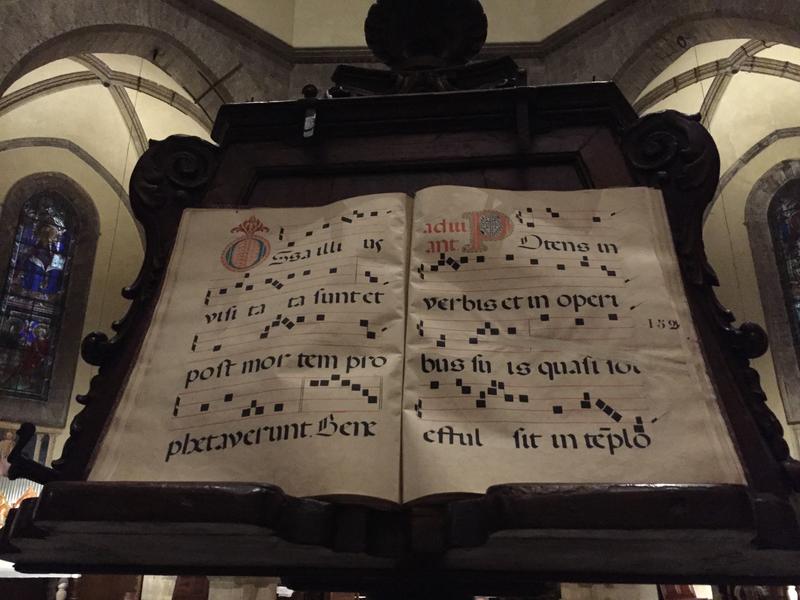 Ossa illi us
visi ta ta sunt et
post mor tem pro
phetaverunt. Bene
adiu
ant
Potens in
verbis et in operi
152
bus su is quasi sol
effulsit in tẽplo